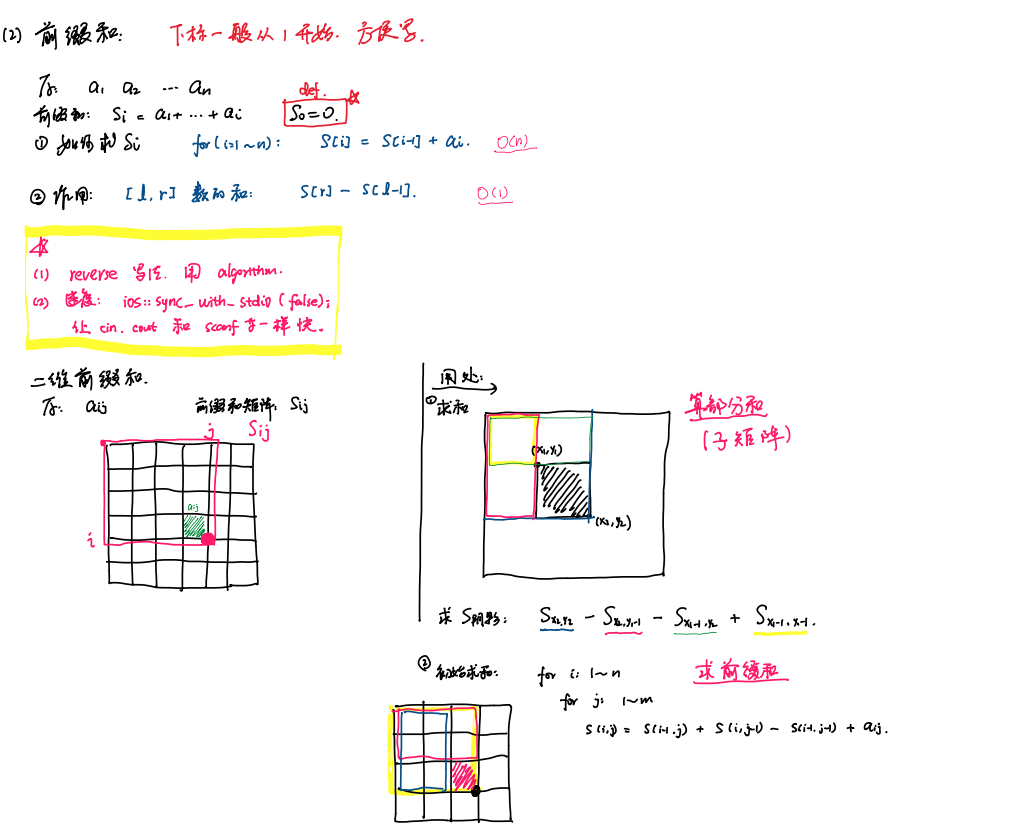 (2) 前缀和: 下标一般从1开始. 方便写.
存: a1 a2 ... an
def.
前缀和: Si = a1+ ... + ai S0=0.
① 如何求 Si for(i=1~n): S[i] = S[i-1] + ai. O(n)
② 作用: [l,r] 数的和: S[r] - S[l-1]. O(1)
(1) reverse 写法. 用 algorithm.
(2) 速度: ios::sync_with_stdio(false);
让 cin. cout 和 scanf 等一样快。
二维前缀和.
存: aij 前缀和矩阵: Sij
j Sij
aij
i
用处:
①求和
算部分和
(子矩阵)
(x1,y1)
(x2,y2)
求 S阴影: Sx2,y2 - Sx2,y1-1 - Sx1-1,y2 + Sx1-1,y1-1.
② 初始求和: for i: 1~n 求前缀和
for j: 1~m
S(i,j) = S(i-1,j) + S(i,j-1) - S(i-1,j-1) + aij.